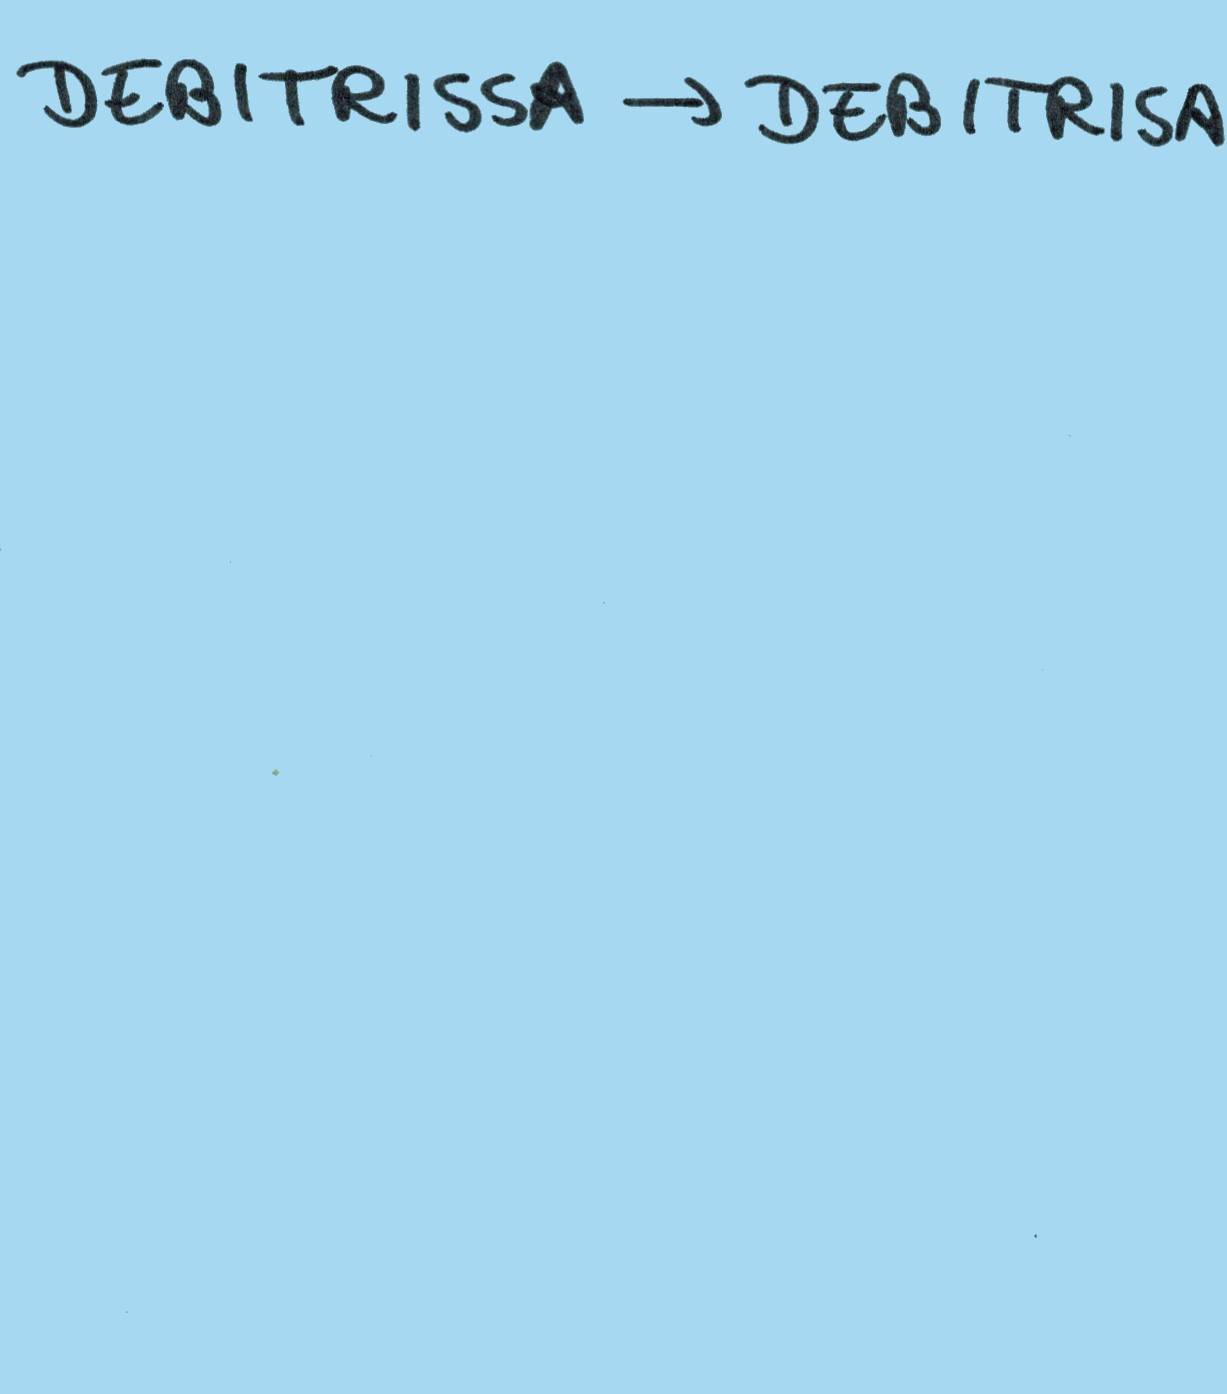 DEBITRISSA → DEBITRISA